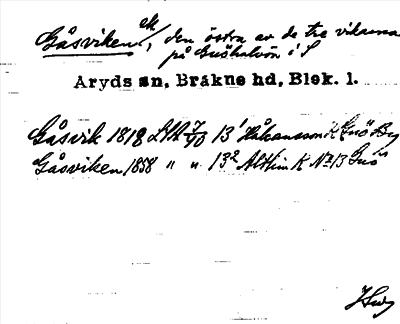 Gåsviken, vik
den östra av de tre vikarna
på Gnöhalvön i S
Aryds sn, Bräkne hd, Blek. l.
Gåsvik 1818 LMA 7/70 13' Håkansson K Gnö By
Gåsviken 1858 " " 13² Althin K No 13 Gnö